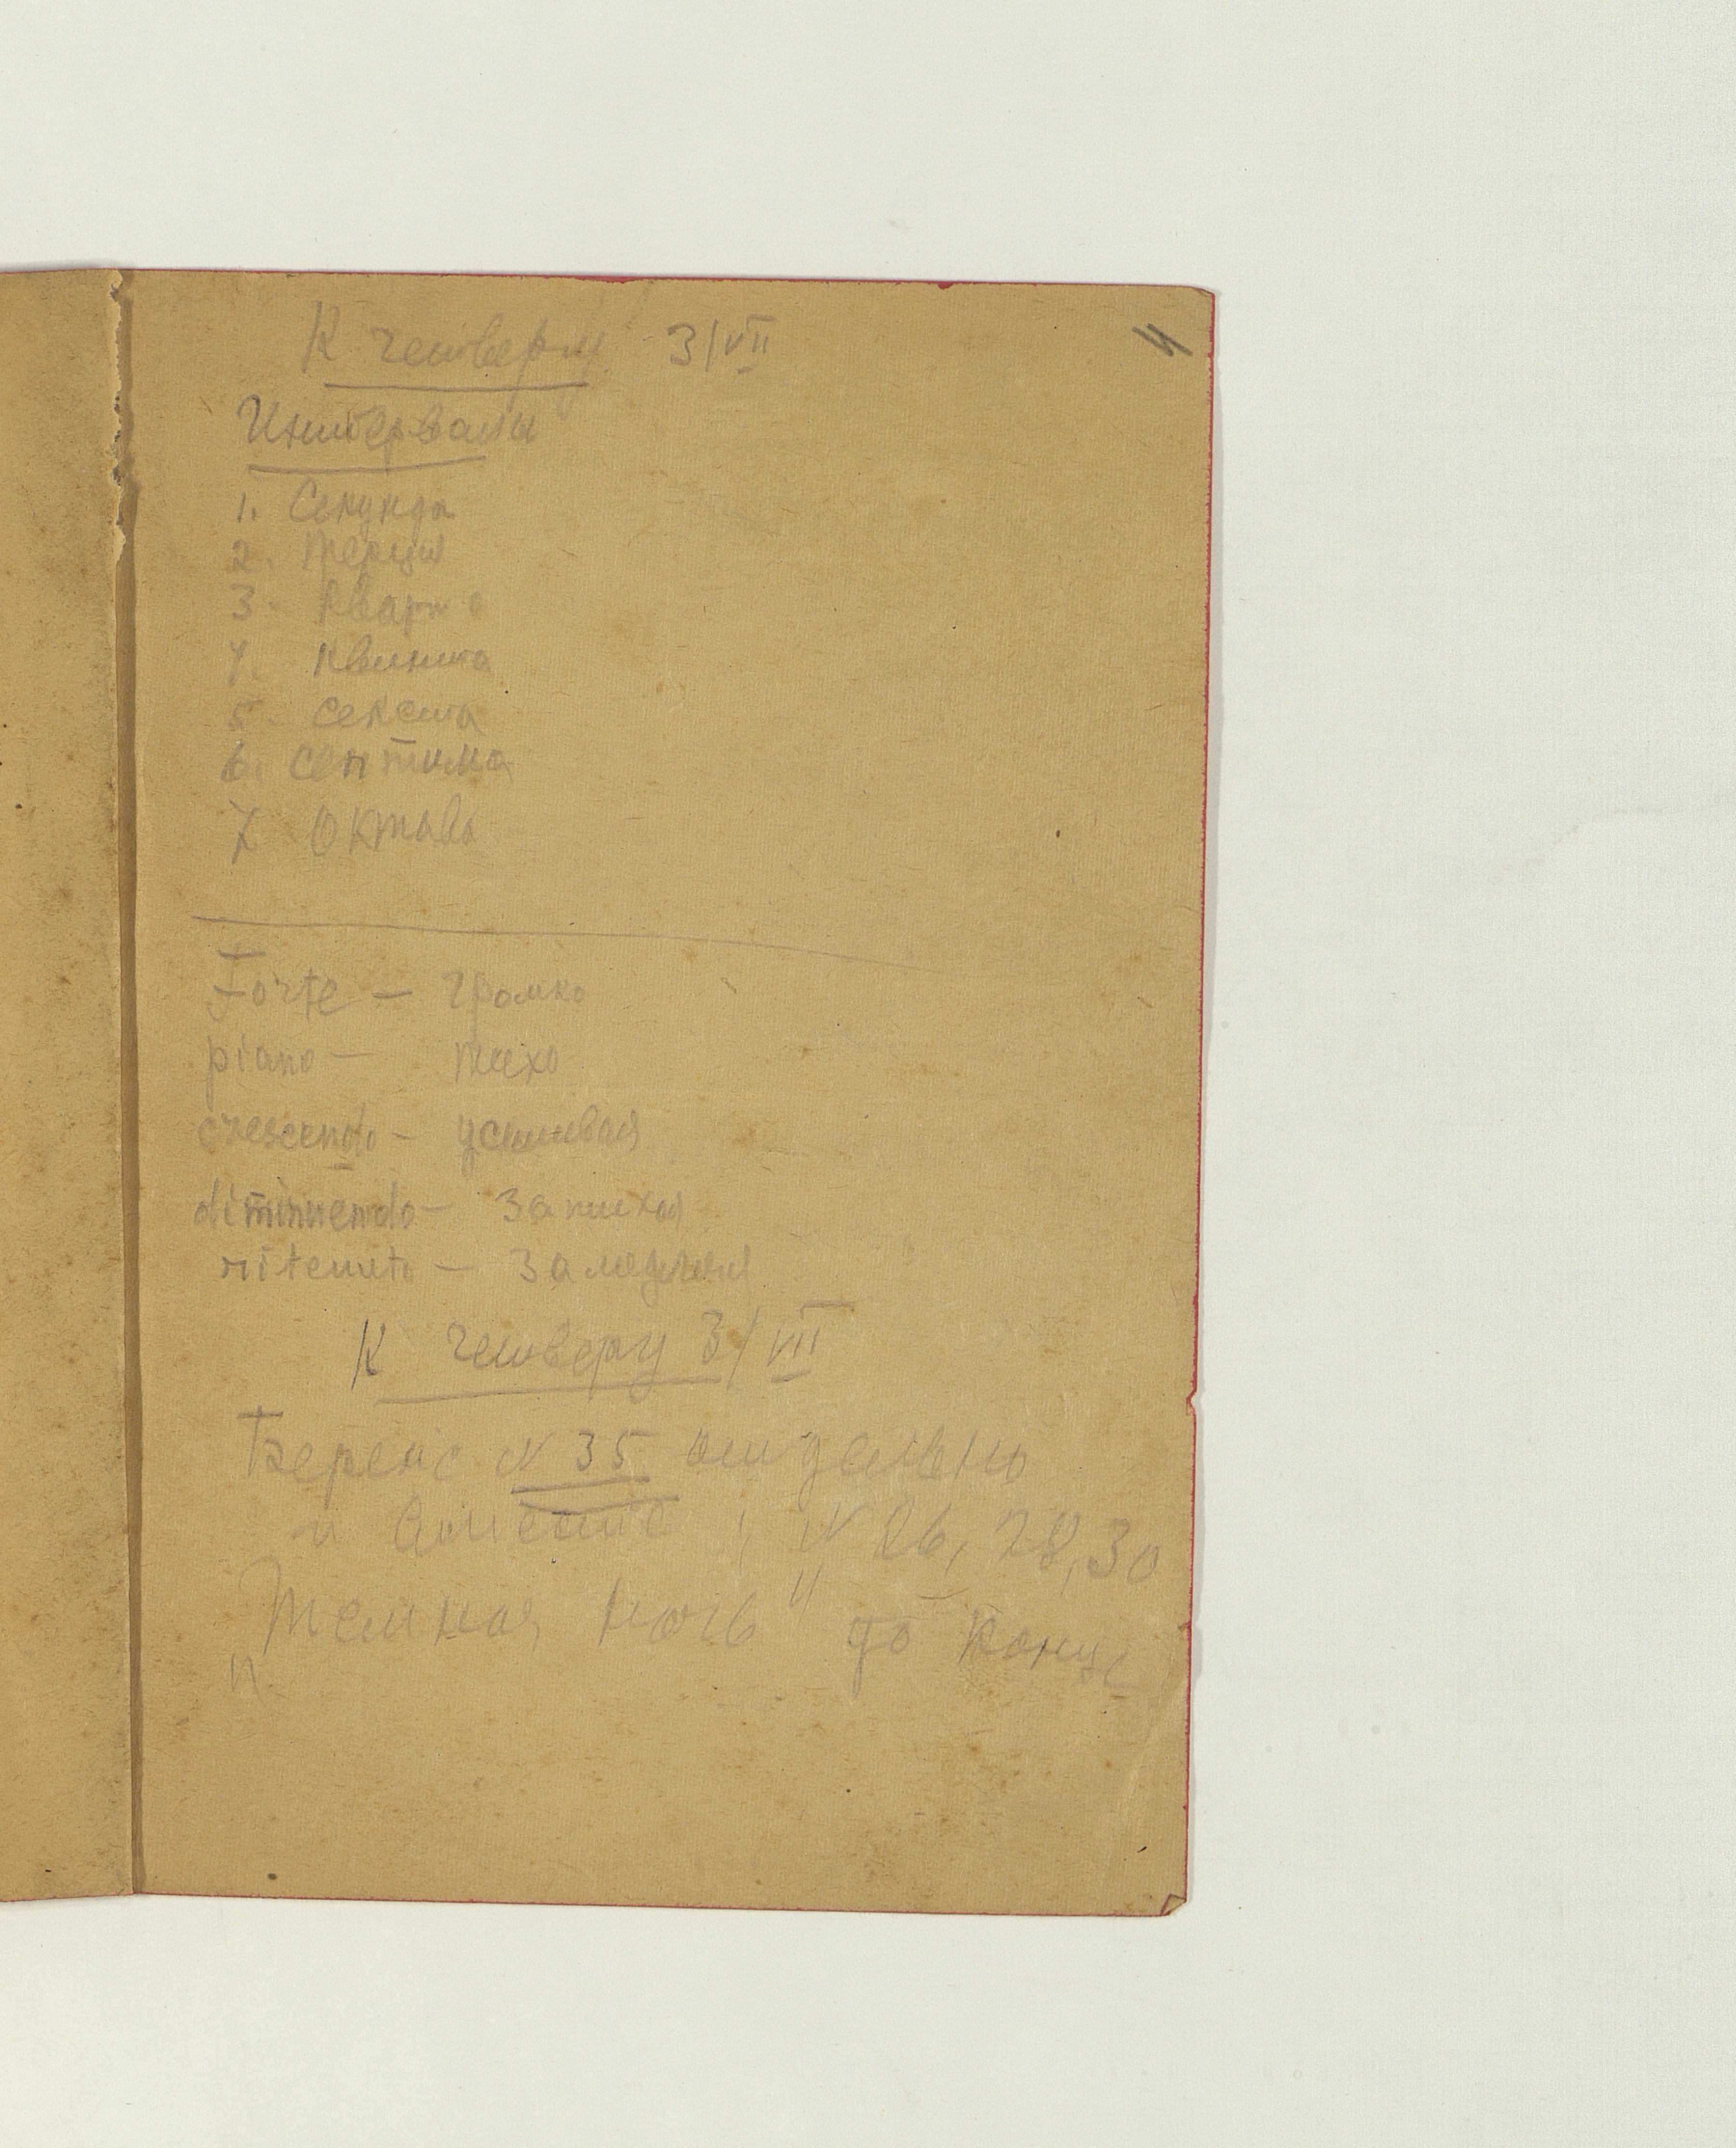 К четвергу 3/VII
Интервалы
1. Секунда
2. терция
3. Кварта
4. Квинта
5. секста
6. септима
7 Октава
Forte — громко
piano — тихо
crescendo — усиливая
diminuendo — затихая
ritenuto — замедляя
К четвергу 3/VII
Беренс № 35 отдельно
и вместе; № 26, 28, 30
„Темная ночь" до конца